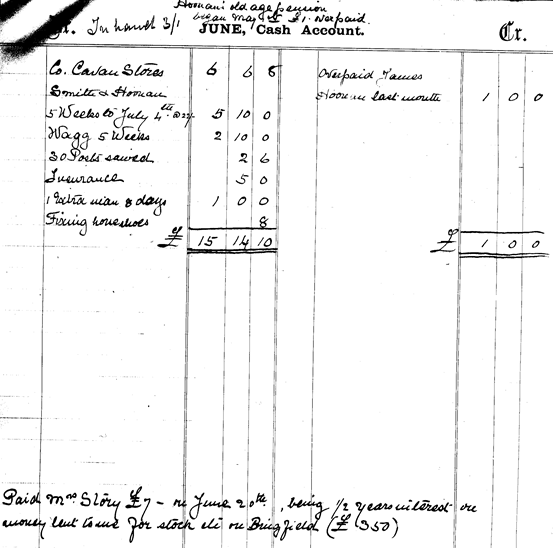 Noonan's old age pension
began May 1st £1. overpaid.
Dr. In hand 3/1 JUNE, Cash Account. Cr.
Co. Cavan Stores 6 6 8
Smith & Noonan
5 Weeks to July 4th @ 22/- 5 10 0
Wagg 5 Weeks 2 10 0
30 Posts sawed 2 6
Insurance 5 0
1 extra man 8 days 1 0 0
Fixing horseshoes 8
£ 15 14 10
Overpaid James
Noonan last month 1 0 0
£ 1 0 0
Paid Mrs Story £7 - on June 20th, being 1/2 years interest on
money lent to me for stock etc on Bingfield (£350)